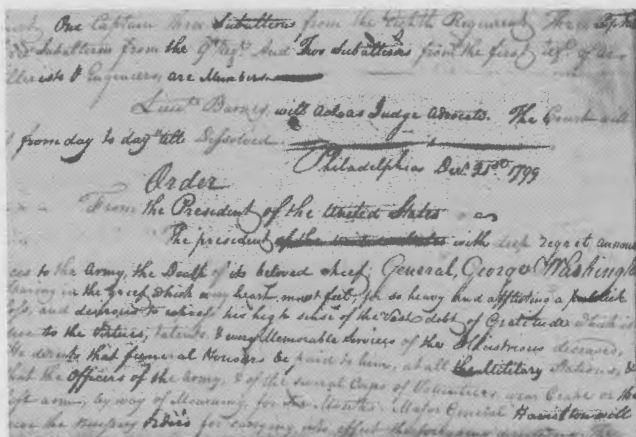 One Captain three Subalterns from the Eighth Regiment, Three
Subalterns from the 9th Regt. And Two Subalterns from the first Regt. of
& Engineers, are Members
Lieut. Barney, will act as Judge Advocate. The Court will
from day to day till Dissolved
Philadelphia Decr. 21st 1799
Order
From the President of the United States
The president of the united states with deep regret announ
ces to the Army, the Death of its beloved chief, General, George Washington
Sharing in the grief which every heart must feel, for so heavy and afflicting a publick
loss, and desirous to express his high sense of the Vast debt of Gratitude which is
due to the virtues, talents & ever Memorable Services of the Illustrious deceased,
He directs that funeral Honours be paid to him, at all the Military Stations, &
that the Officers of the Army, & of the several Corps of Volunteers, wear Crape on the
left arm, by way of Mourning, for Six Months. Major General Hamilton will
the necessary orders for carrying into effect the foregoing